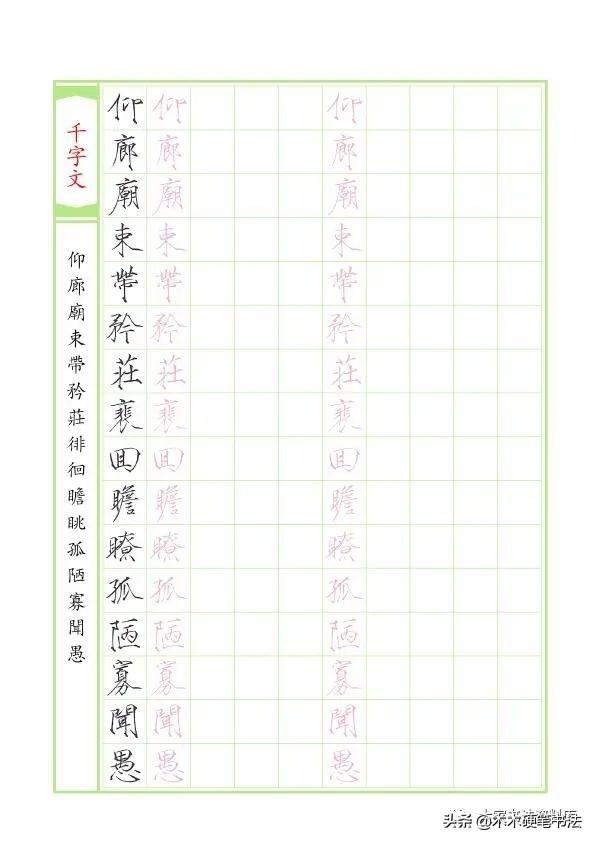 千字文
仰廊廟束帶矜莊徘徊瞻眺孤陋寡聞愚
仰廊廟束帶矜莊裵囬瞻瞭孤陋寡聞愚
仰廊廟束帶矜莊裵囬瞻瞭孤陋寡聞愚
仰廊廟束帶矜莊裵囬瞻瞭孤陋寡聞愚
头条 @木木硬笔书法